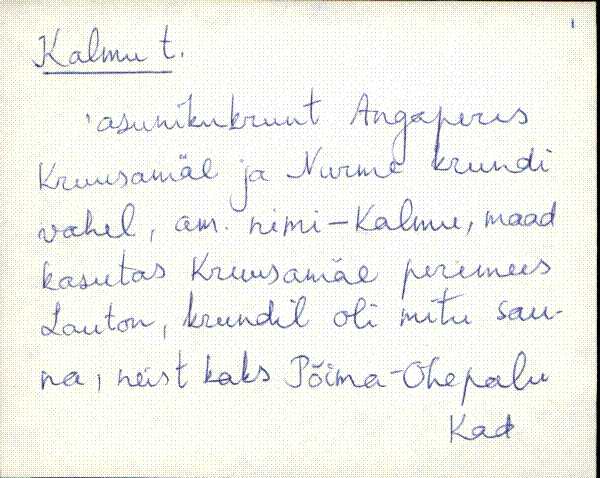 Kalmu t.
'asunikukrunt Angaperes
Kruusamäe ja Nurme krundi
vahel, am. nimi - Kalmu, maad
kasutas Kruusamäe peremees
Lauton, krundil oli mitu sau-
na, neist kaks Põima-Ohepalu
Kad